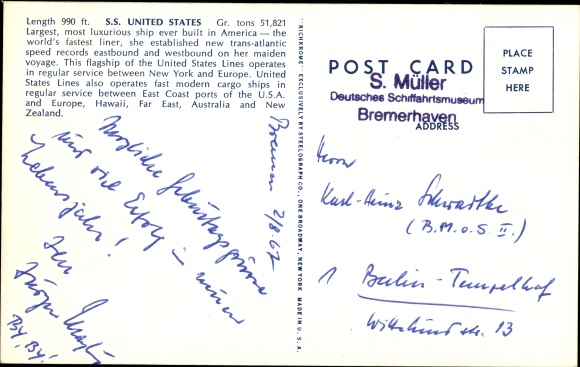 Length 990 ft. S.S. UNITED STATES Gr. tons 51,821
Largest, most luxurious ship ever built in America — the
world's fastest liner, she established new trans-atlantic
speed records eastbound and westbound on her maiden
voyage. This flagship of the United States Lines operates
in regular service between New York and Europe. United
States Lines also operates fast modern cargo ships in
regular service between East Coast ports of the U.S.A.
and Europe, Hawaii, Far East, Australia and New
Zealand.
Bremen 2/8.67
Herzliche Geburtstagsgrüsse
und viel Erfolg im neuen
Lebensjahr!
Jürgen
By, By!
"RICHKROME" EXCLUSIVELY BY STEELOGRAPH CO., ONE BROADWAY, NEW YORK MADE IN U.S.A.
POST CARD
S. Müller
Deutsches Schiffahrtsmuseum
Bremerhaven
ADDRESS
PLACE
STAMP
HERE
Herrn
Karl-Heinz Schwadtke
(B.M.o.S II.)
1 Berlin-Tempelhof
str. 13